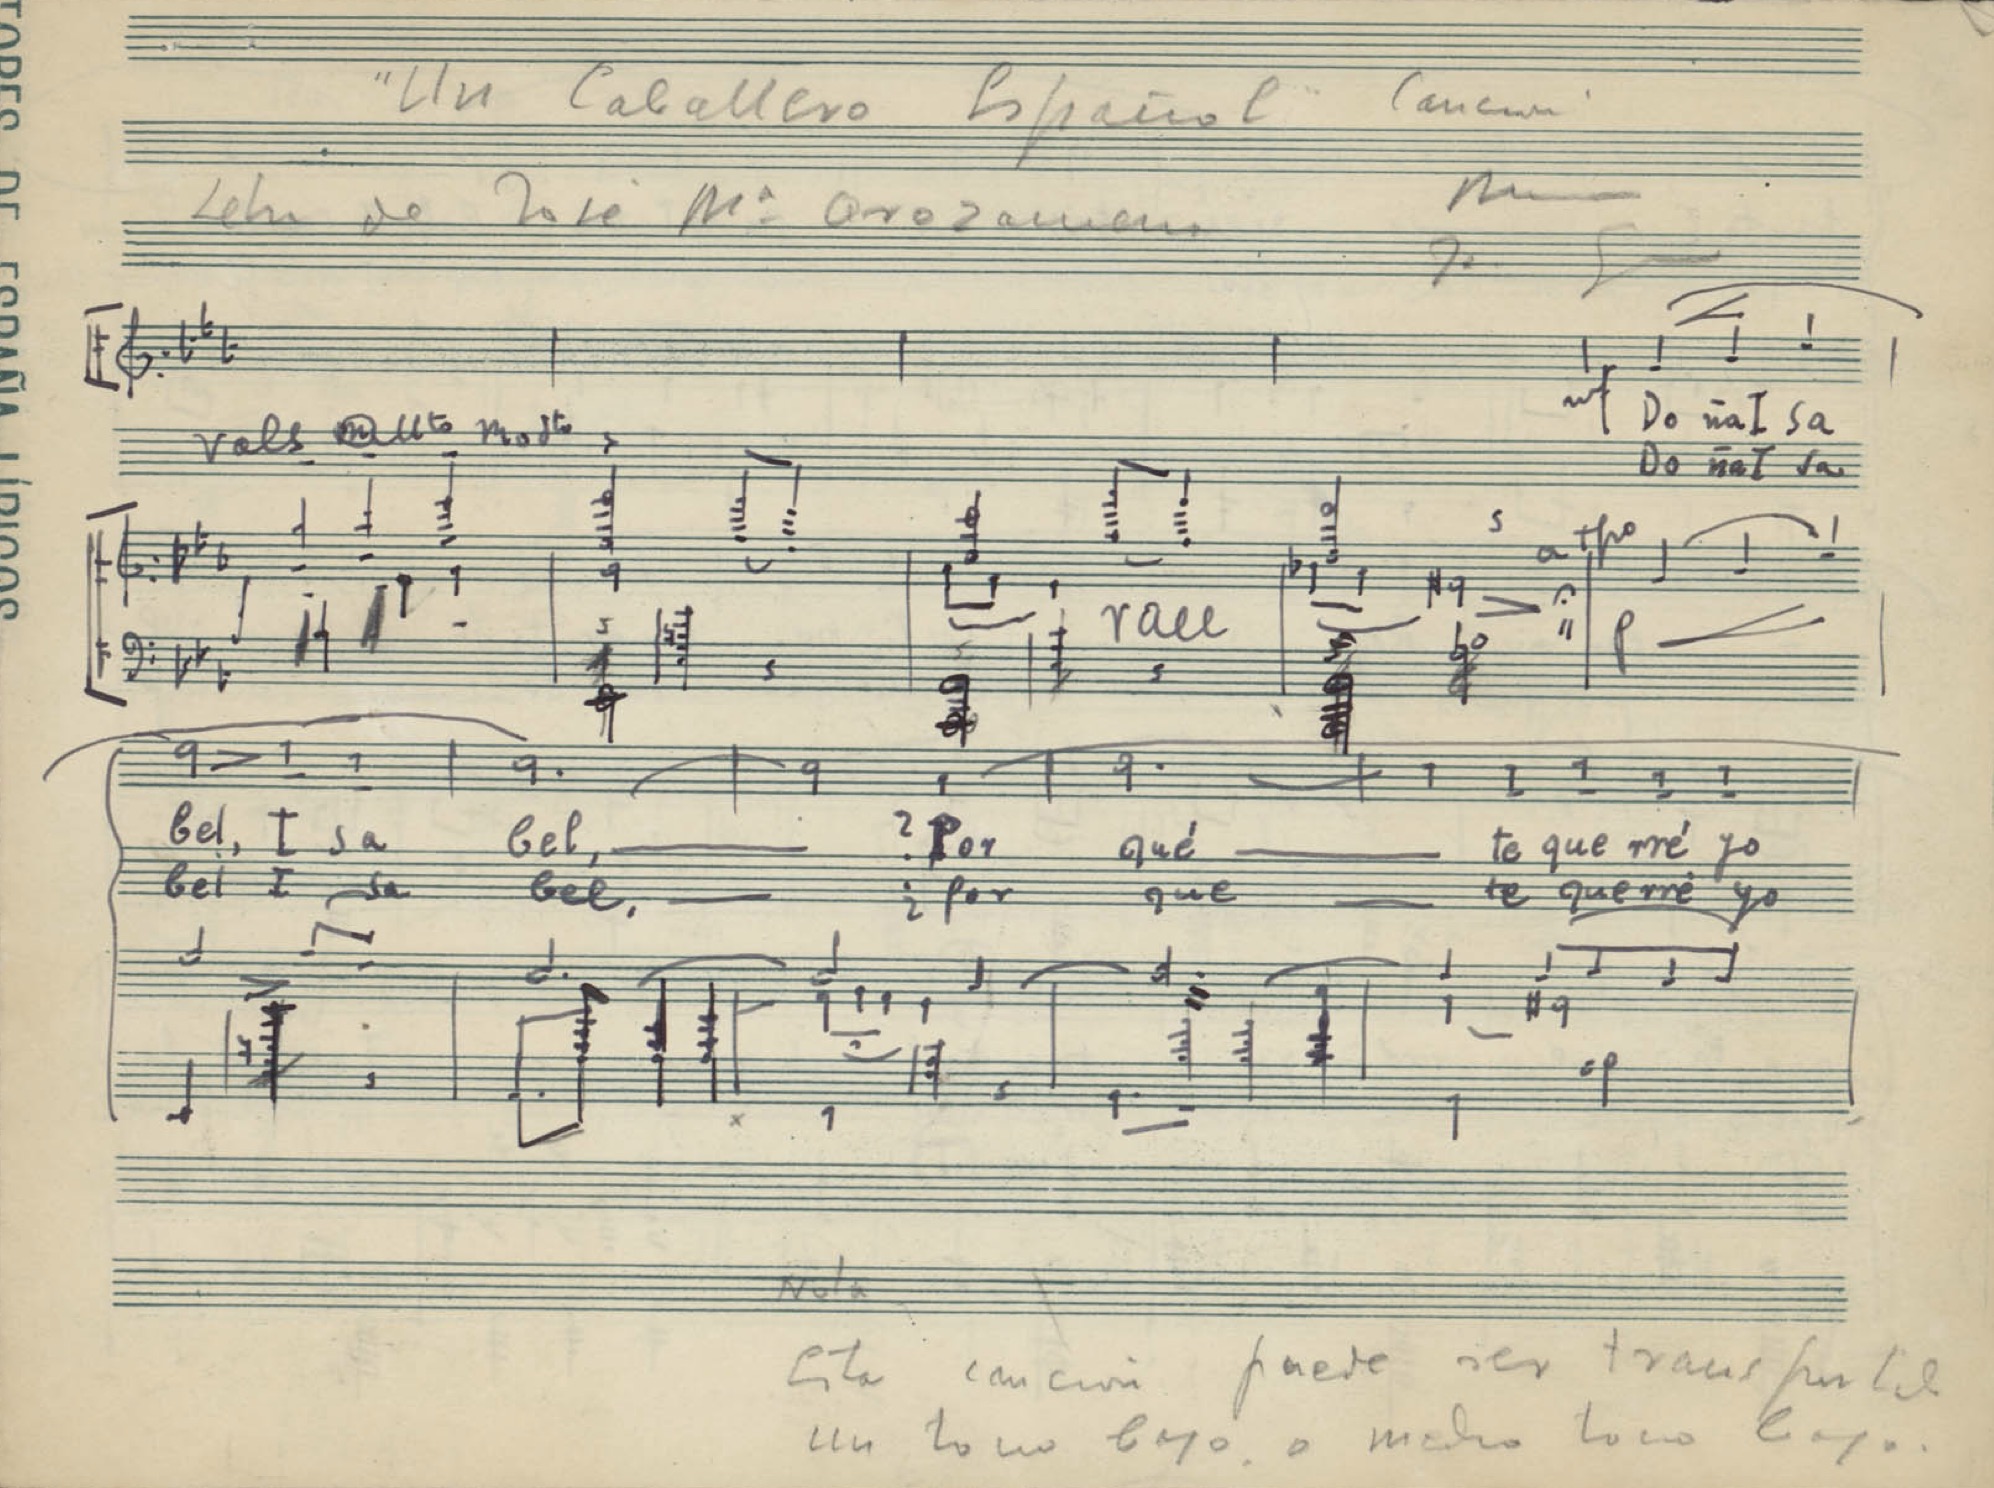 "Un Caballero Español" Canción
Letra de José Mª Arozamena
mf
Do ñaI sa
Do ñaI sa
vals Mo
a tpo
rall
p
bel, I sa bel, ¿Por qué te que rré yo
bel I sa bel, ¿por que te querré yo
Nota
Esta canción puede ser transportada
un tono bajo, o medio tono bajo.
TORES DE ESPAÑA LÍRICOS